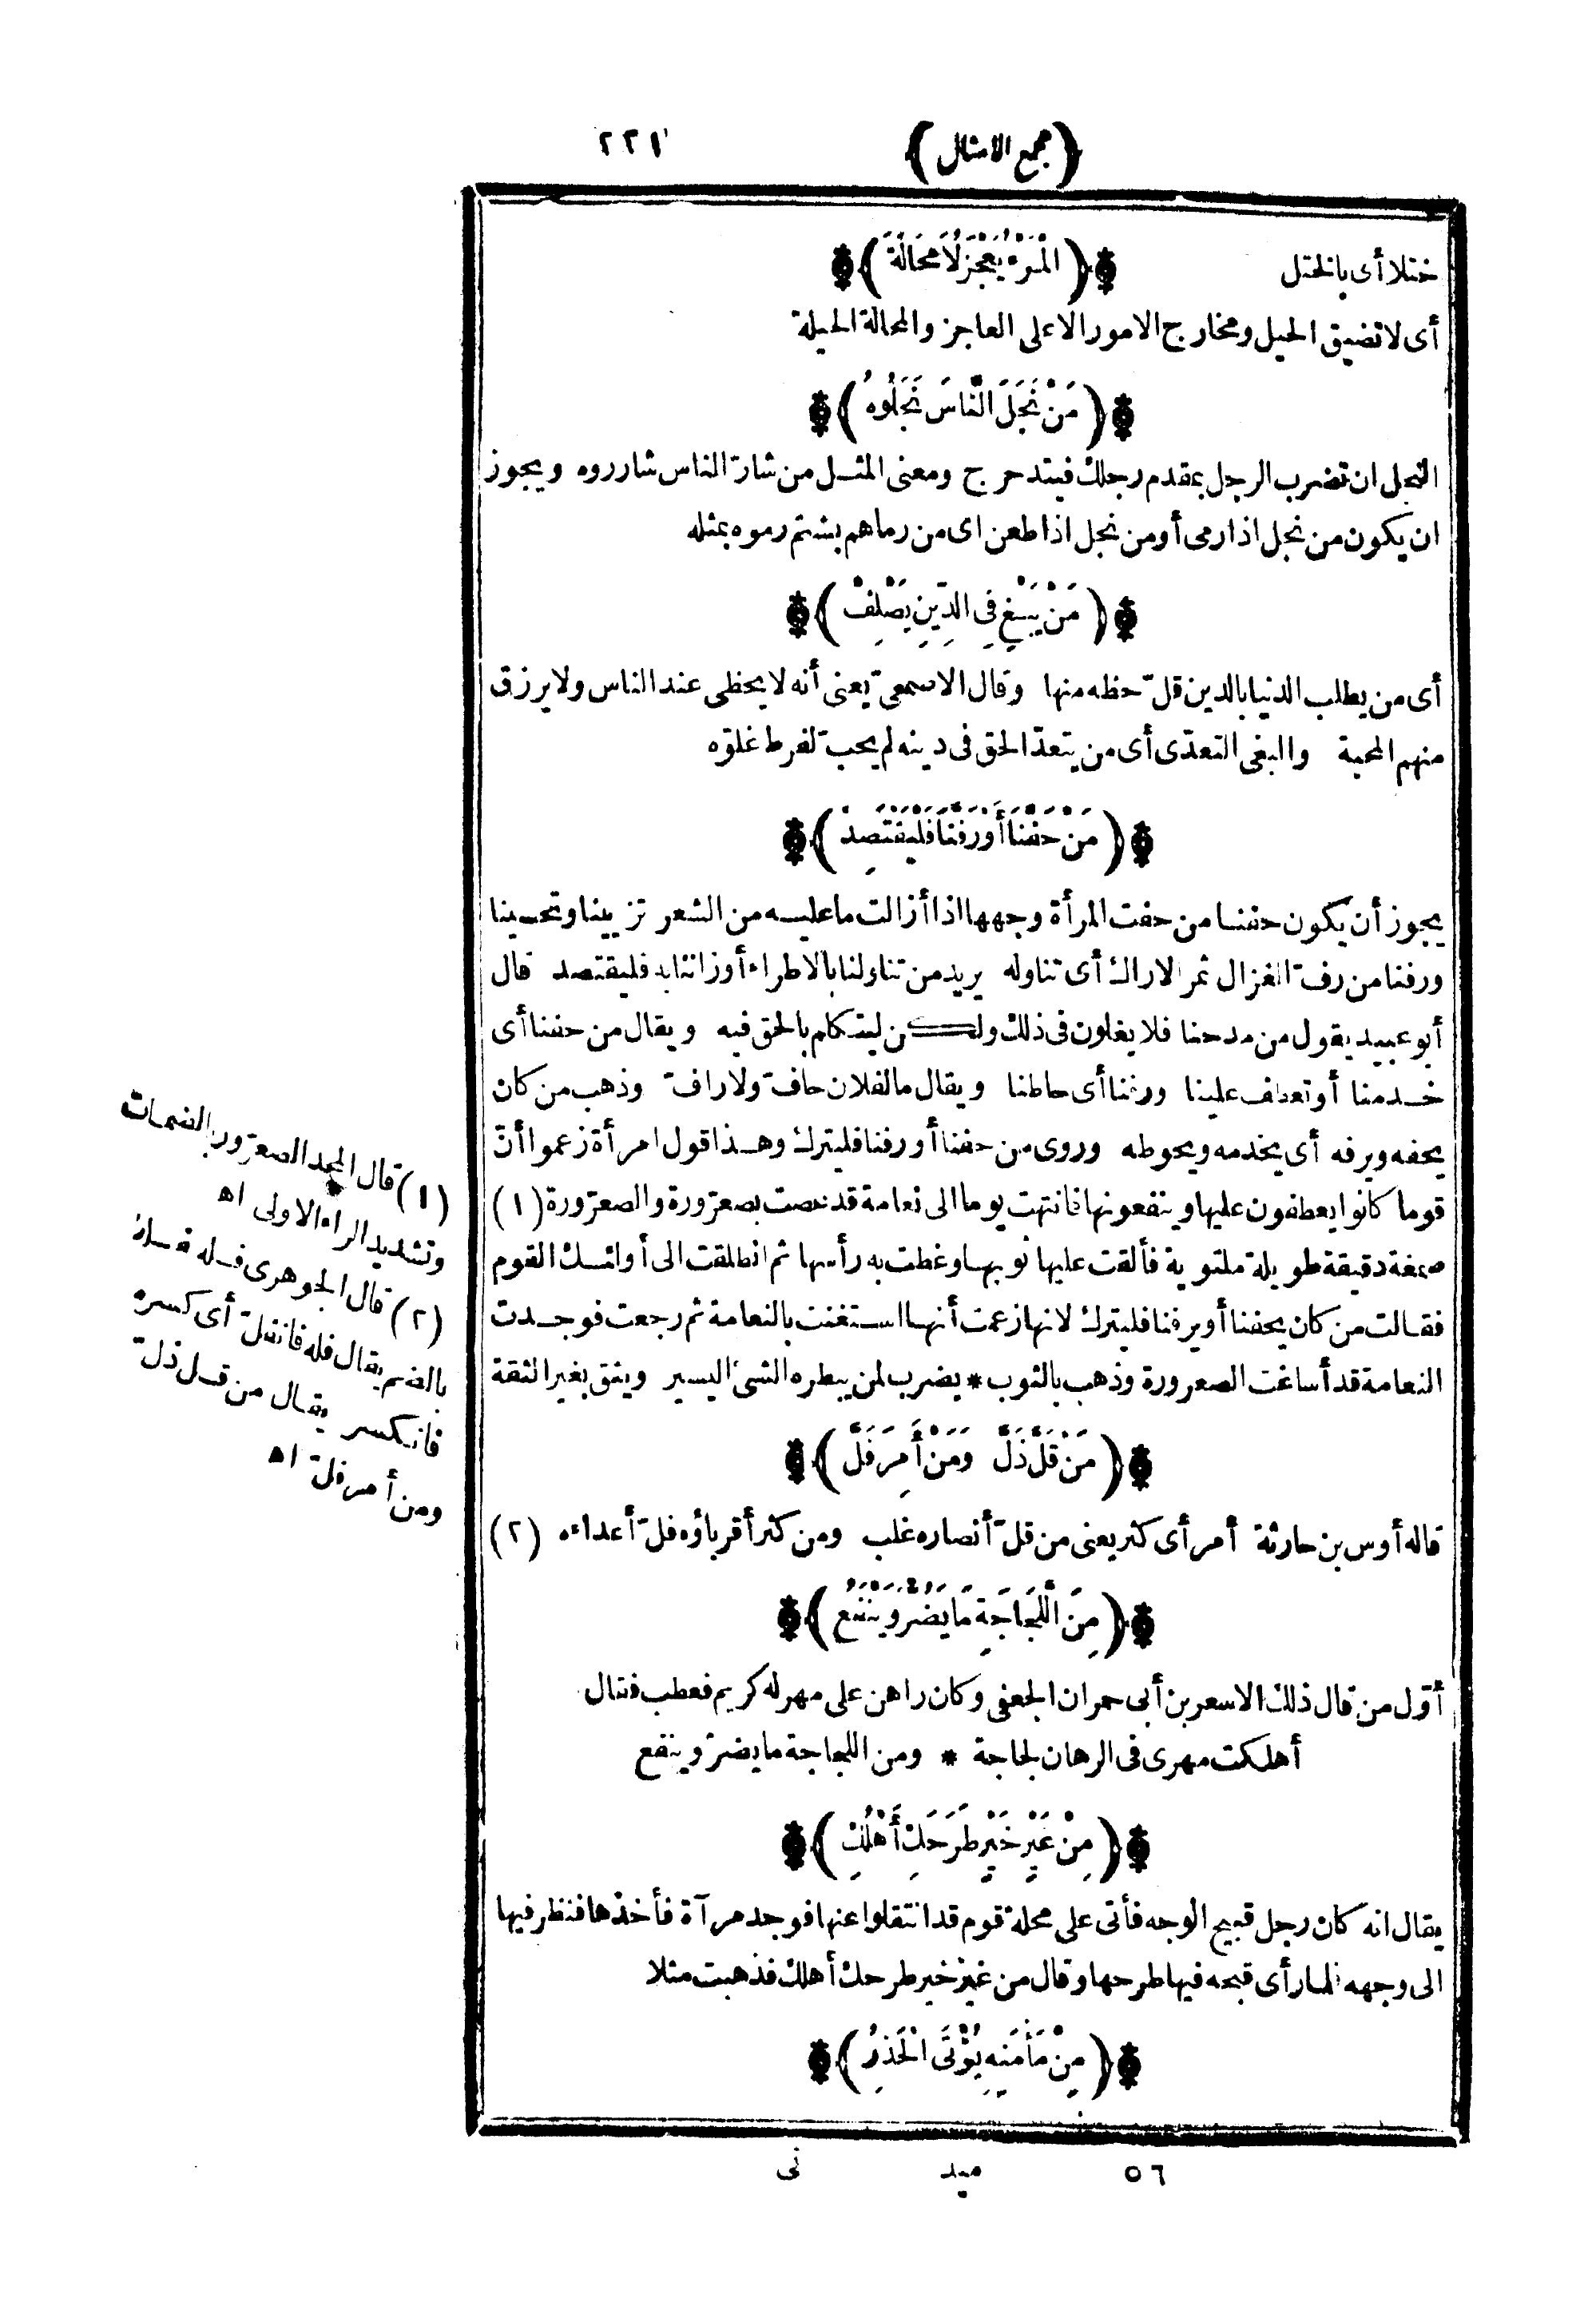 ﴿مجمع الامثال﴾ ٢٢١
ختلا أى بالختل ﴿الْمَرْءُ يَعْجَزُ لَا مَحَالَةَ﴾
أى لا تضيق الحيل ومخارج الامور الا على العاجز والمحالة الحيلة
﴿مَنْ نَجَلَ النَّاسَ نَجَلُوهُ﴾
النجل ان تضرب الرجل بمقدم رجلك فيتدحرج ومعنى المثل من شارّ الناس شارروه ويجوز
ان يكون من نجل اذا رمى أو من نجل اذا طعن اى من رماهم بشتم رموه بمثله
﴿مَنْ يَبْغِ فِى الدِّينِ يَصْلِفْ﴾
أى من يطلب الدنيا بالدين قلّ حظه منها وقال الاصمعىّ يعنى أنه لا يحظى عند الناس ولا يرزق
منهم المحبة والبغى التعدّى أى من يتعدّ الحق فى دينه لم يحبّ لفرط غلوّه
﴿مَنْ حَفَّنَا أَوْ رَفَّنَا فَلْيَقْتَصِدْ﴾
يجوز أن يكون حفنا من حفت المرأة وجهها اذا أزالت ما عليه من الشعر تزيينا وتحسينا
ورفنا من رفّ الغزال ثمر الاراك أى تناوله يريد من تناولنا بالاطراء أو زاننا به فليقتصد قال
أبو عبيد يقول من مدحنا فلا يغلون فى ذلك ولكن ليتكلم بالحق فيه ويقال من حفنا أى
خدمنا أو تعطف علينا ورفنا أى حاطنا ويقال مالفلان حافّ ولا رافّ وذهب من كان
يحفه ويرفه أى يخدمه ويحوطه وروى من حفنا أو رفنا فليترك وهذا قول امرأة زعموا أنّ
قوما كانوا يعطفون عليها وينفعونها فانتهت يوما الى نعامة قد غصت بصعرّورة والصعرّورة (١)
صمغة دقيقة طويلة ملتوية فألقت عليها ثوبها وغطت به رأسها ثم انطلقت الى أولئك القوم
فقالت من كان يحفنا أو يرفنا فليترك لانها زعمت أنها استغنت بالنعامة ثم رجعت فوجدت
النعامة قد أساغت الصعرورة وذهب بالثوب * يضرب لمن يبطره الشئ اليسير ويثق بغير الثقة
﴿مَنْ قَلَّ ذَلَّ وَمَنْ أَمِرَ فَلَّ﴾
قاله أوس بن حارثة أمر أى كثر يعنى من قلّ أنصاره غلب ومن كثر أقرباؤه فلّ أعداءه (٢)
﴿مِنَ اللَّجَاجَةِ مَا يَضُرُّ وَيَنْفَعُ﴾
أوّل من قال ذلك الاسعر بن أبى حمران الجعفى وكان راهن على مهر له كريم فعطب فقال
أهلكت مهرى فى الرهان لجاجة * ومن اللجاجة ما يضرّ وينفع
﴿مِنْ غَيْرِ خَيْرٍ طَرَحَكِ أَهْلُكِ﴾
يقال انه كان رجل قبيح الوجه فأتى على محلة قوم قد انتقلوا عنها فوجد مرآة فأخذها فنظر فيها
الى وجهه فلما رأى قبحه فيها طرحها وقال من غير خير طرحك أهلك فذهبت مثلا
﴿مِنْ مَأْمَنِهِ يُؤْتَى الْحَذِرُ﴾
٥٦ ميد نى
(١) قال المجد الصعرّور بالضمات
وتشديد الراء الاولى اه
(٢) قال الجوهرى فله فلا
بالضم يقال فله فانفلّ أى كسره
فانكسر يقال من قل ذلّ
ومن أمر فلّ اه